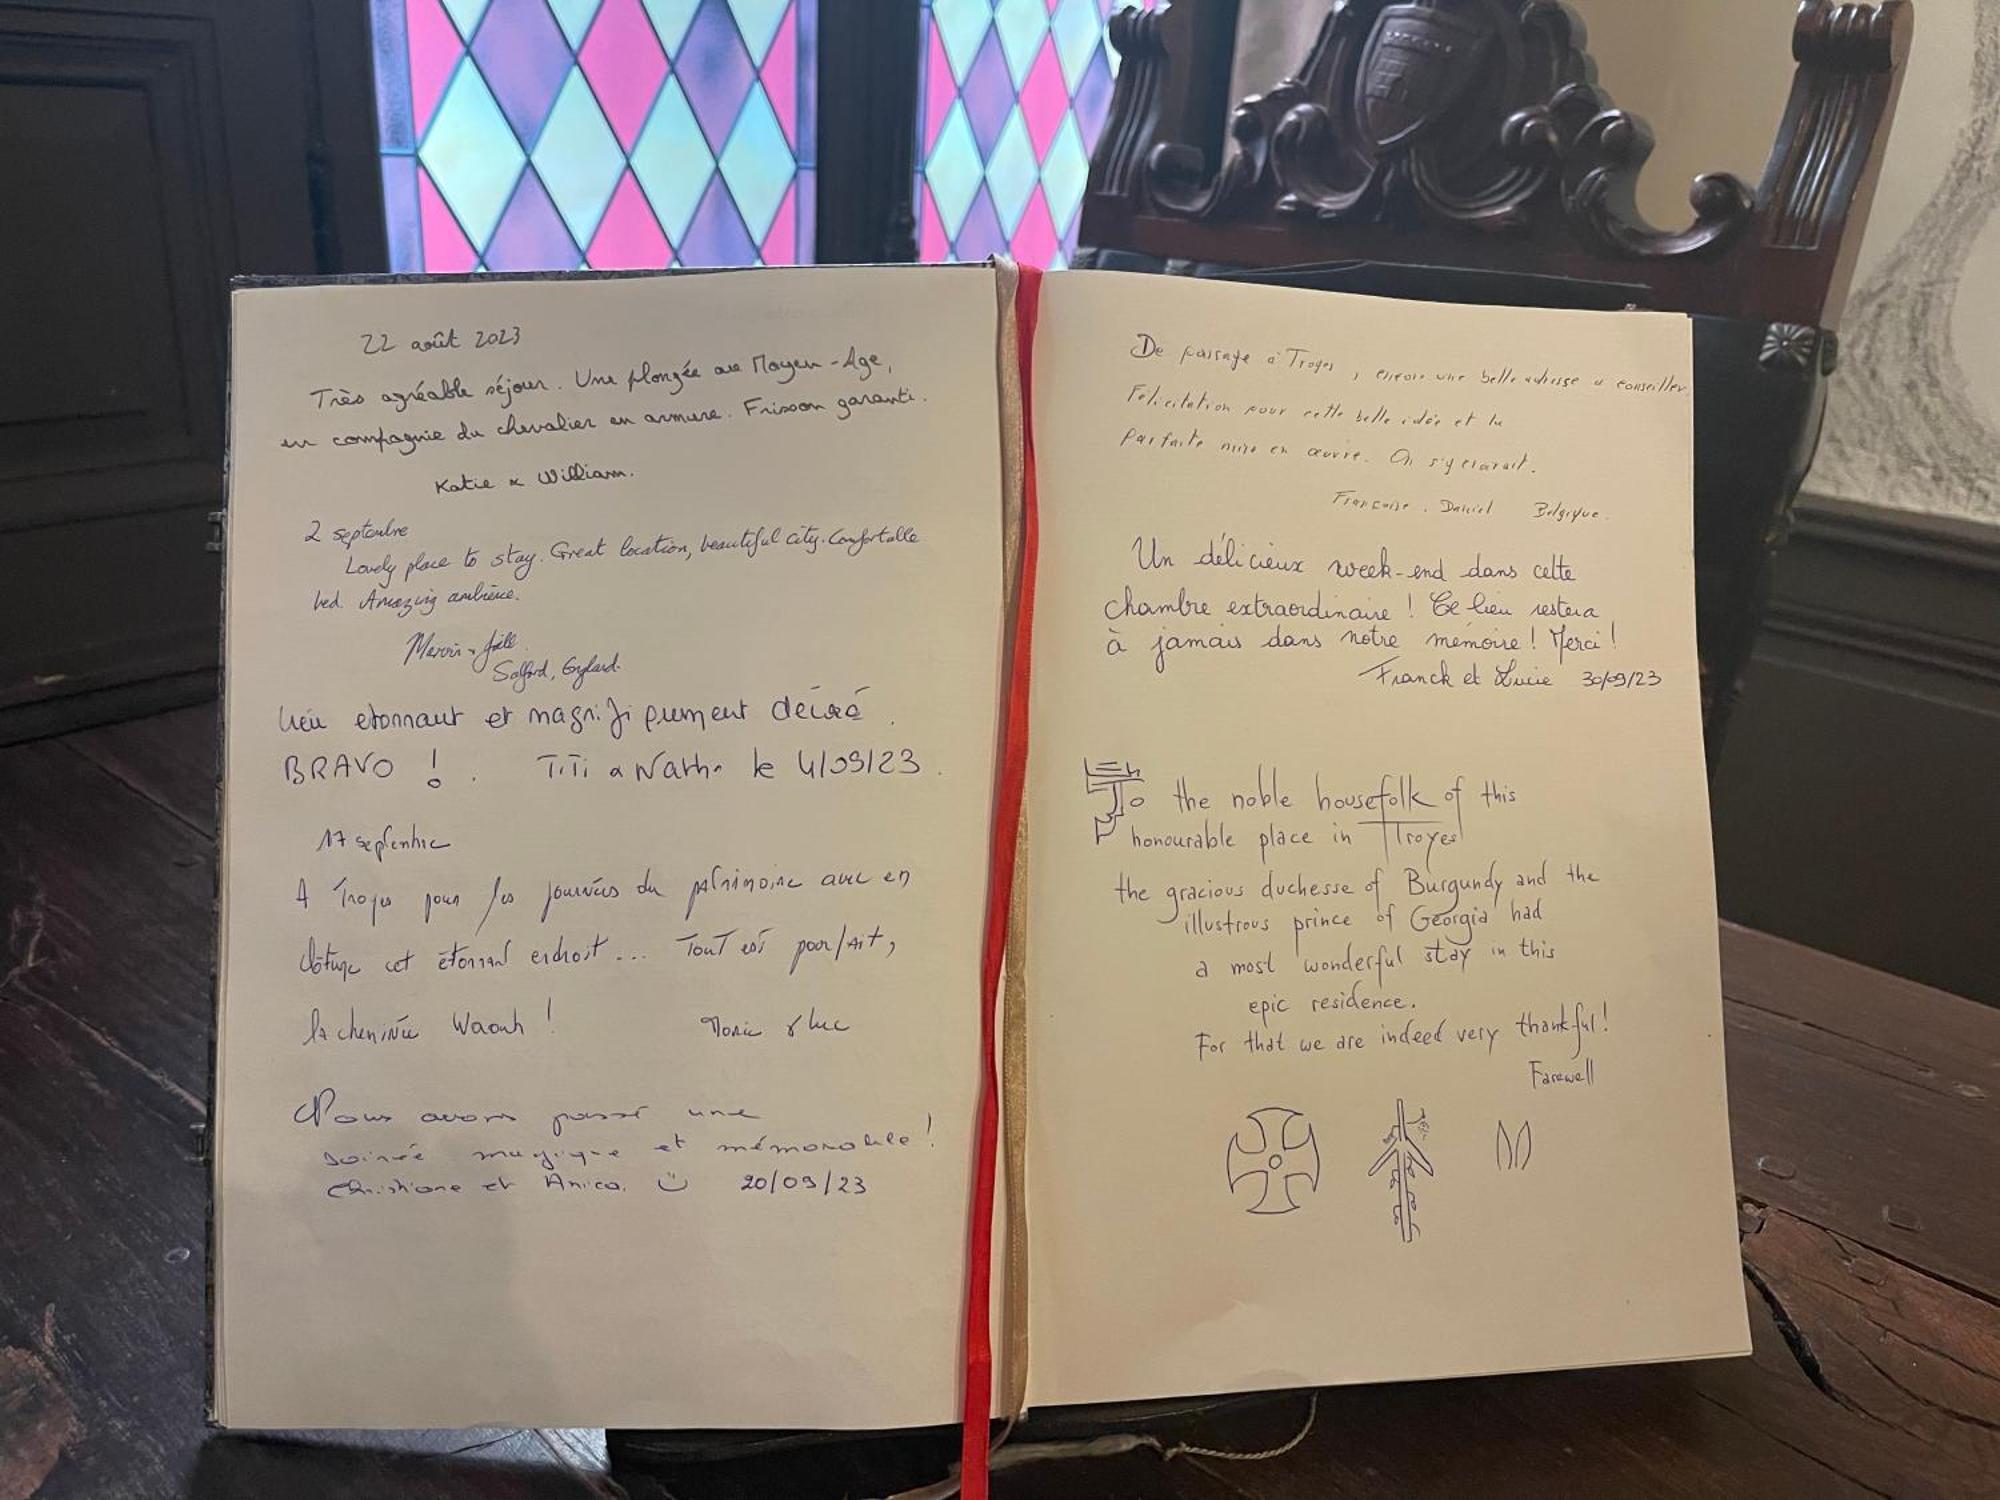 22 août 2023
Très agréable séjour. Une plongée au Moyen-Age,
en compagnie du chevalier en armure. Frisson garanti.
Katie & William.
2 septembre
Lovely place to stay. Great location, beautiful city. Comfortable
bed. Amazing ambience.
Salford, England.
Lieu etonnant et magnifiquement décoré.
BRAVO ! . TiTi & Nath. le 4/09/23.
17 septembre
A Troyes pour les journées du patrimoine avec en
clôture cet étonnant endroit ... Tout est parfait,
la cheminée Waouh !
& Luc
Nous avons passé une
soirée magique et mémorable !
Christiane et Anica. 20/09/23
De passage à Troyes, encore une belle adresse à conseiller
Félicitation pour cette belle idée et la
parfaite mise en œuvre. On s'y croirait.
Françoise. Daniel Belgique.
Un délicieux week-end dans cette
chambre extraordinaire ! Ce lieu restera
à jamais dans notre mémoire ! Merci !
Franck et Lucie 30/09/23
To the noble housefolk of this
honourable place in Troyes
the gracious duchesse of Burgundy and the
illustrous prince of Georgia had
a most wonderful stay in this
epic residence.
For that we are indeed very thankful!
Farewell